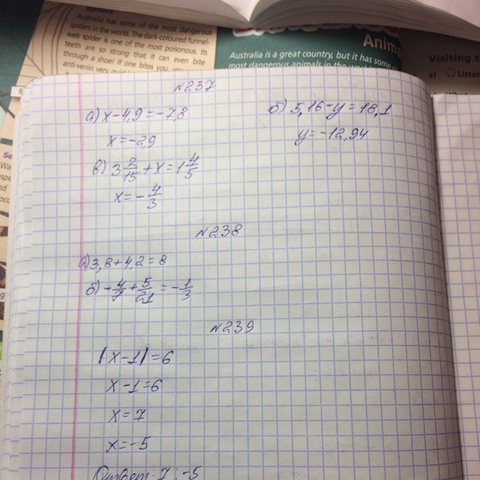 Australia has some of the most dangerous
spiders in the world. The dark-coloured funnel-
web spider is one of the most poisonous. Its
teeth are so strong that it can even bite
through a shoe! If one bites you,
anti-venin
Anima
Australia is a great country, but it has some
most dangerous animals in the
Visiting
a) Listen
№237
а) x-4,9=-7,8
x=-2,9
б) 5,16-y=18,1
y=-12,94
в) 3 2/15 + x = 1 4/5
x=-4/3
№238
а) 3,8+4,2=8
б) -4/7+5/21=-1/3
№239
|x-1|=6
x-1=6
x=7
x=-5
Ответ: 7; -5